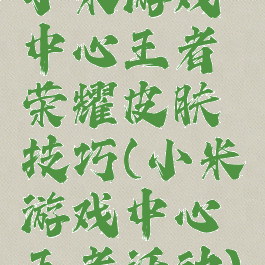 小米游戏
中心王者
荣耀皮肤
技巧(小米
游戏中心
王者活动)